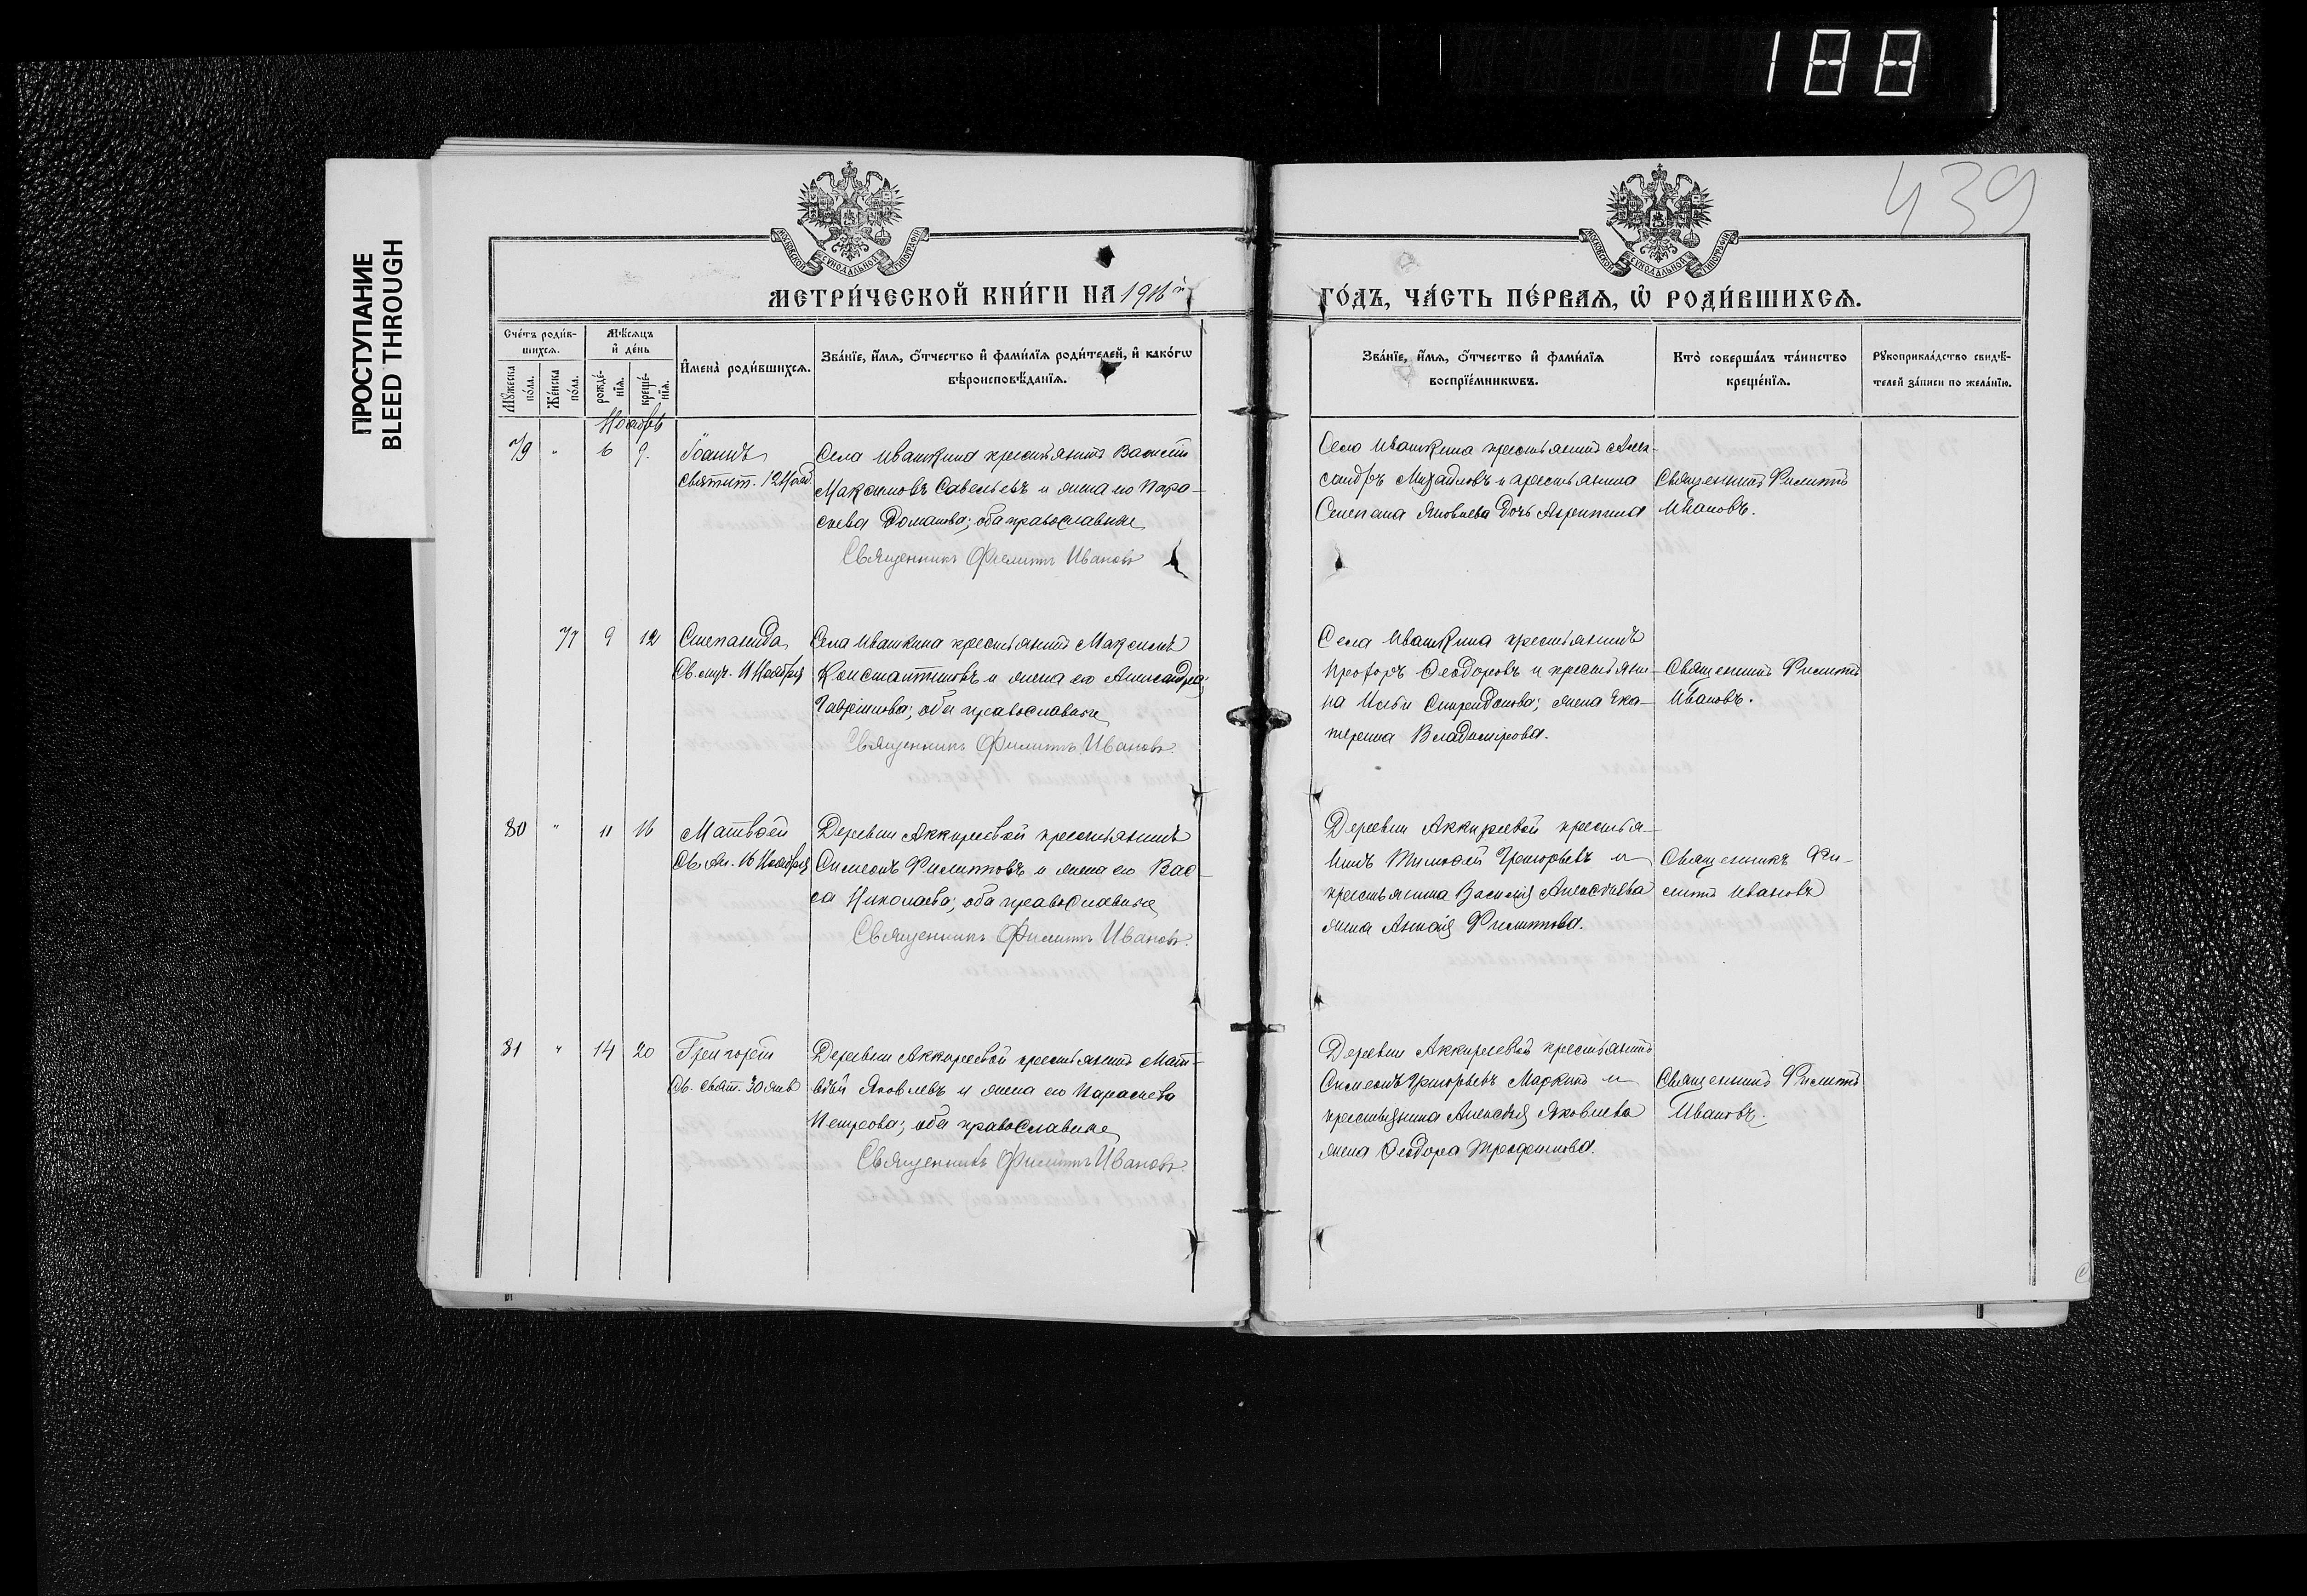 188
439
ПРОСТУПАНИЕ
BLEED THROUGH
МЕТРИ́ЧЕСКОЙ КНИ́ГИ НА 1916 й
ГО́ДЪ, ЧА́СТЬ ПЕ́РВАЯ, Ѽ РОДИ́ВШИХСЯ.
Сче́тъ роди́в-
шихся.
Мѣ́сяцъ
и҆ де́нь
Мꙋ́жеска по́ла.
Же́нска по́ла.
рожде́-
нїѧ.
креще́-
нїѧ.
И҆мена̀ роди́вшихся.
Зва́нїе, и҆́мя, ѻ҆́тчество и҆ фами́лїя роди́телей, и҆ како́гѡ
вѣроисповѣ́данїя.
Зва́нїе, и҆́мя, ѻ҆́тчество и҆ фами́лїя
воспрїе́мникѡвъ.
Кто̀ соверша́лъ та́инство
креще́нїя.
Рꙋкоприкла́дство свидѣ́-
телей за́писи по жела́нїю.
Ноябрь
79 " 6 9.
Іоаннъ
святит. 12 Нояб.
Села Ивашкина крестьянинъ Василій
Максимовъ Савельевъ и жена его Пара-
скева Доманова; оба православные
Священникъ Филиппъ Ивановъ
Села Ивашкина крестьянинъ Алек-
сандръ Михайловъ и крестьянина
Степана Яковлева дочь Агрипина
Священникъ Филиппъ
Ивановъ.
77 9 12
Степанида
Св. муч. 11 Ноября
Села Ивашкина крестьянинъ Максимъ
Константиновъ и жена его Александра
Гавриилова; оба православные
Священникъ Филиппъ Ивановъ.
Села Ивашкина крестьянинъ
Прохоръ Ѳеодоровъ и крестьяни-
на Ильи Спиридонова; жена Ека-
терина Владимірова.
Священникъ Филиппъ
Ивановъ.
80 " 11 16
Матвѣй
Св. Ап. 16 Ноября
Деревни Аккиреевой крестьянинъ
Симеонъ Филипповъ и жена его Вас-
са Николаева; оба православные
Священникъ Филиппъ Ивановъ.
Деревни Аккиреевой крестья-
нинъ Тимофей Григорьевъ и
крестьянина Василія Алексѣева
жена Анисія Филиппова.
Священникъ Фи-
липпъ Ивановъ
81 " 14 20
Григорій
Св. свят. 30 Янв
Деревни Аккиреевой крестьянинъ Мат-
вѣй Яковлевъ и жена его Параскева
Петрова; оба православные
Священникъ Филиппъ Ивановъ.
Деревни Аккиреевой крестьянинъ
Симеонъ Григорьевъ Маркинъ и
крестьянина Алексѣя Яковлева
жена Ѳеодора Трофимова.
Священникъ Филиппъ
Ивановъ.